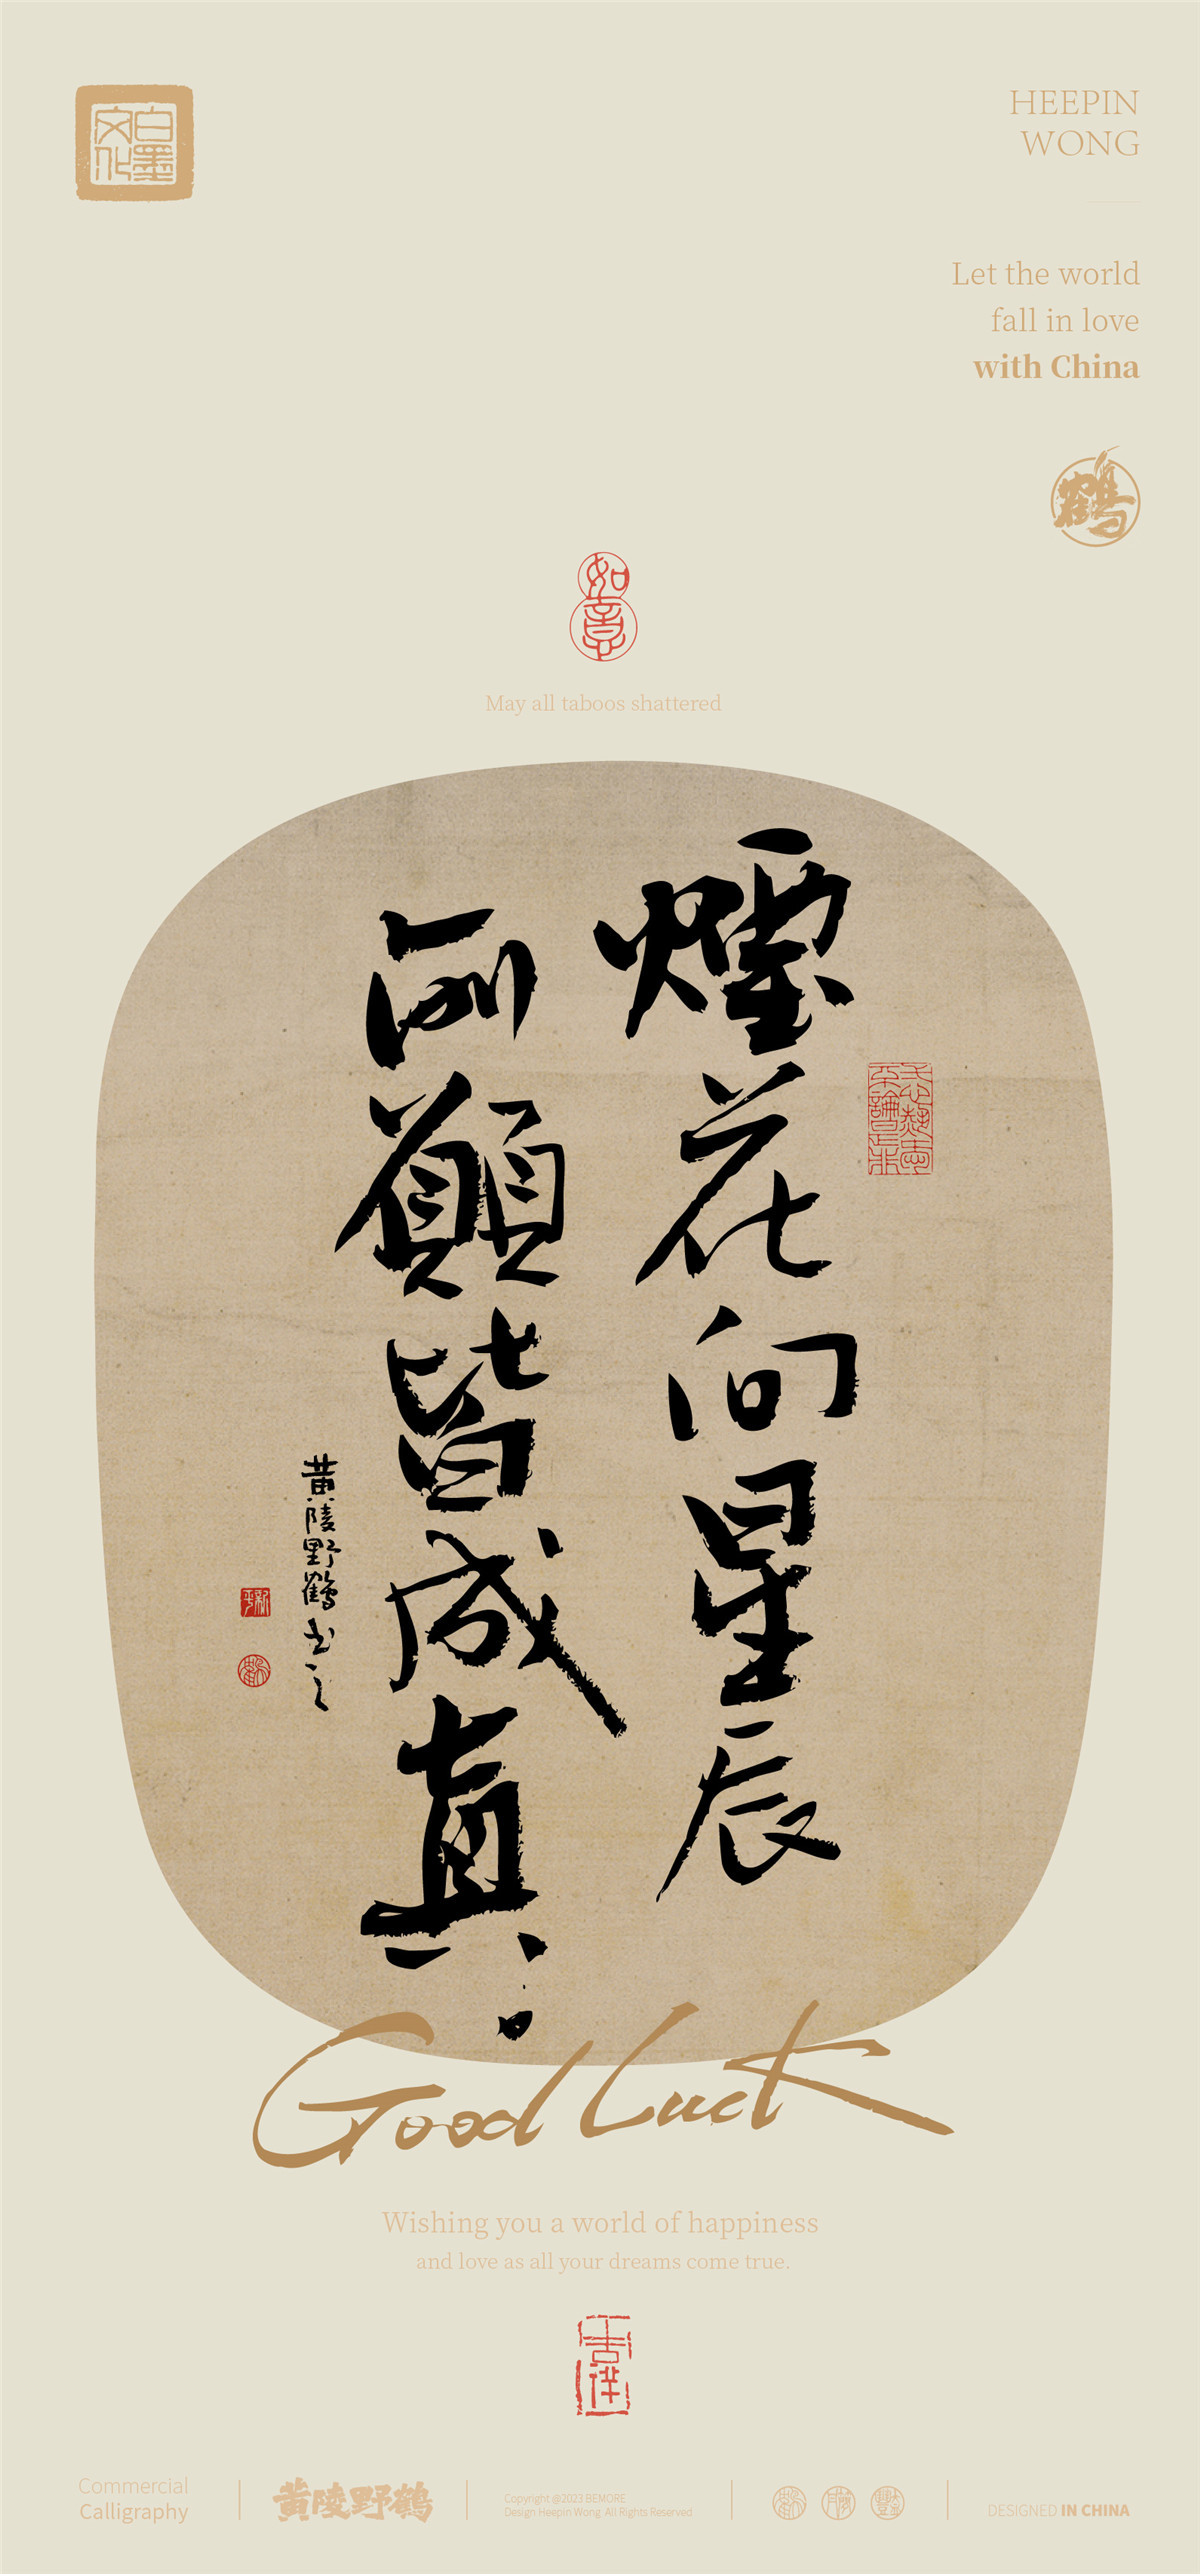 白墨文化
HEEPIN
WONG
Let the world
fall in love
with China
鶴
如意
May all taboos shattered
煙花向星辰
所願皆成真
黄陵野鶴书之
Good Luck
Wishing you a world of happiness
and love as all your dreams come true.
吉祥
Commercial
Calligraphy
黄陵野鶴
Copyright @2023 BEMORE
Design Heepin Wong. All Rights Reserved
DESIGNED IN CHINA